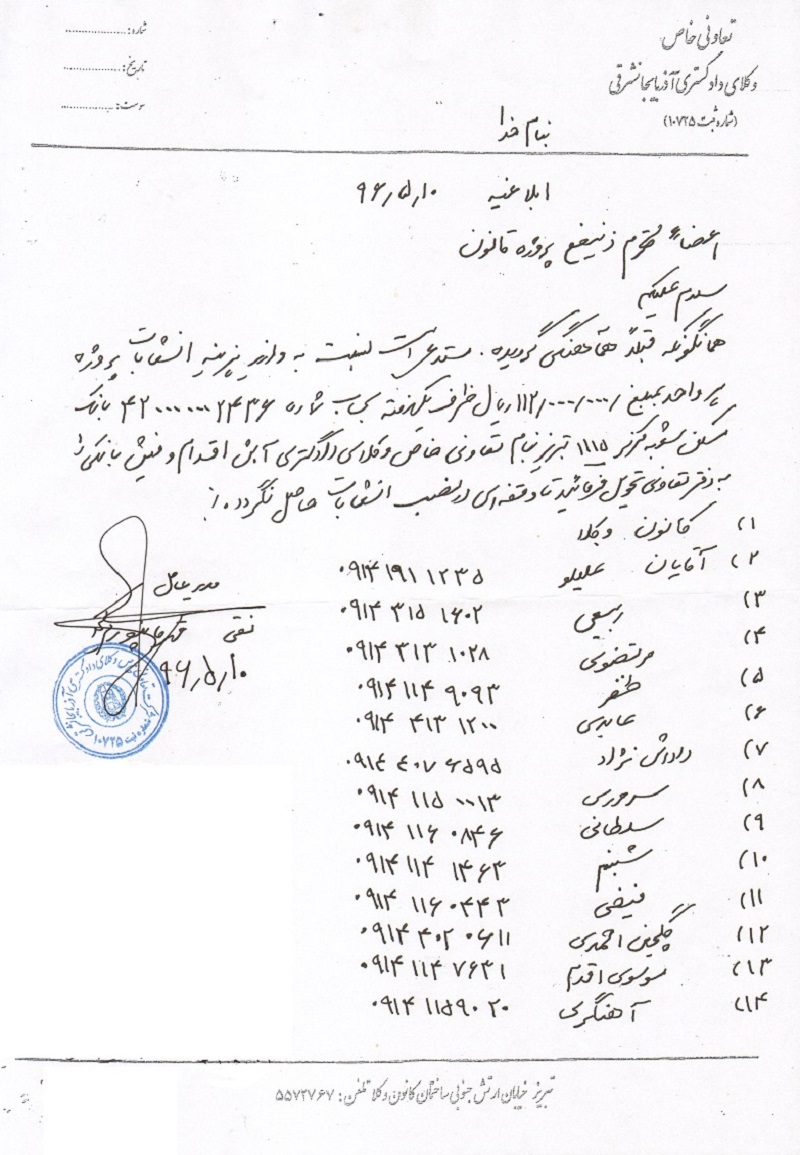 تعاونی خاص
وکلای دادگستری آذربایجانشرقی
(شماره ثبت ۱۰۷۲۵)
شماره: ..................
تاریخ: ..................
پیوست: ..................
بنام خدا
ابلاغیه ۹۶٫۵٫۱۰
اعضاء محترم ذینفع پروژه کانون
سلام علیکم
همانگونه که قبلاً هماهنگی گردیده. مستدعی است نسبت به واریز هزینه انشعابات پروژه
هر واحد بمبلغ ۱۱۲/۰۰۰/۰۰۰/ ریال ظرف یکهفته بحساب شماره ۴۲۰۰۰۰۰۰۲۴۳۶ بانک
مسکن شعبه مرکزی ۱۱۱۵ تبریز بنام تعاونی خاص وکلای دادگستری آ.ش اقدام و فیش بانکی را
به دفتر تعاونی تحویل فرمائید تا وقفه ای در نصب انشعابات حاصل نگردد.
۱) کانون وکلا
۲) آقایان علیلو ۰۹۱۴ ۱۹۱ ۱۲۳۵
۳) ربیعی ۰۹۱۴ ۳۱۵ ۱۶۰۲
۴) مرتضوی ۰۹۱۴ ۳۱۳ ۱۰۲۸
۵) ظفر ۰۹۱۴ ۱۱۴ ۹۰۹۳
۶) عابدی ۰۹۱۴ ۴۱۳ ۱۲۰۰
۷) داداش نژاد ۰۹۱۴ ۴۰۷ ۶۵۹۵
۸) سروری ۰۹۱۴ ۱۱۵ ۰۰۱۳
۹) سلطانی ۰۹۱۴ ۱۱۶ ۰۸۴۶
۱۰) شبنم ۰۹۱۴ ۱۱۴ ۱۴۶۳
۱۱) فیضی ۰۹۱۴ ۱۱۶ ۰۴۴۳
۱۲) گلچین احمدی ۰۹۱۴ ۴۰۲ ۰۶۱۱
۱۳) موسوی اقدم ۰۹۱۴ ۱۱۴ ۷۶۳۱
۱۴) آهنگری ۰۹۱۴ ۱۱۵۹۰۲۰
مدیر عامل
نقی
۹۶٫۵٫۱۰
تبریز خیابان ارتش جنوبی ساختمان کانون وکلا تلفن: ۵۵۷۲۷۶۷